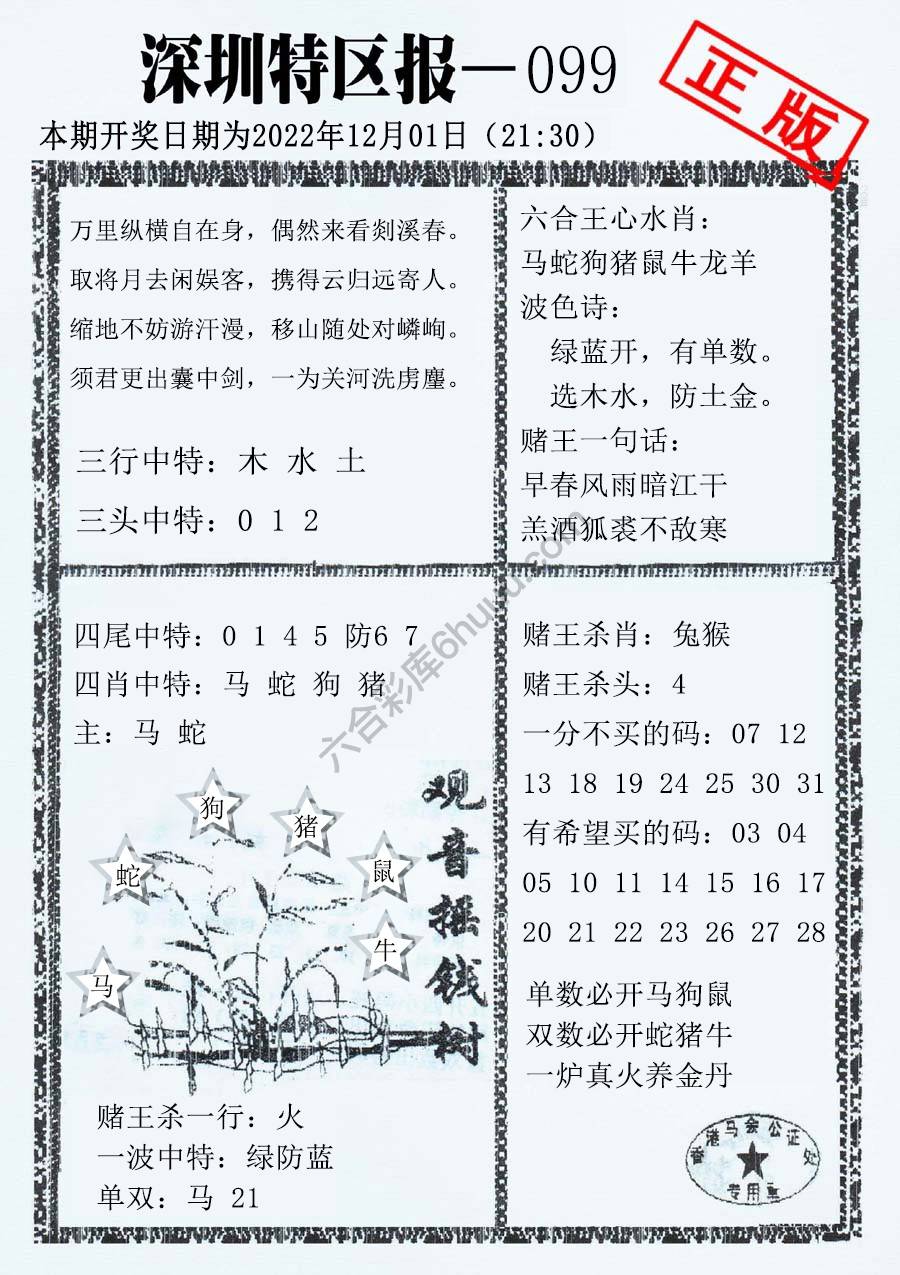 深圳特区报—099
正版
本期开奖日期为2022年12月01日（21:30）
万里纵横自在身，偶然来看剡溪春。
取将月去闲娱客，携得云归远寄人。
缩地不妨游汗漫，移山随处对嶙峋。
须君更出囊中剑，一为关河洗虏鏖。
三行中特：木 水 土
三头中特：0 1 2
六合王心水肖：
马蛇狗猪鼠牛龙羊
波色诗：
绿蓝开，有单数。
选木水，防土金。
赌王一句话：
早春风雨暗江干
羔酒狐裘不敌寒
四尾中特：0 1 4 5 防6 7
四肖中特：马 蛇 狗 猪
主：马 蛇
狗
猪
蛇
鼠
牛
马
观音摇钱树
赌王杀一行：火
一波中特：绿防蓝
单双：马 21
赌王杀肖：兔猴
赌王杀头：4
一分不买的码：07 12
13 18 19 24 25 30 31
有希望买的码：03 04
05 10 11 14 15 16 17
20 21 22 23 26 27 28
单数必开马狗鼠
双数必开蛇猪牛
一炉真火养金丹
香港马会公证处
专用章
六合彩库6huuu.com